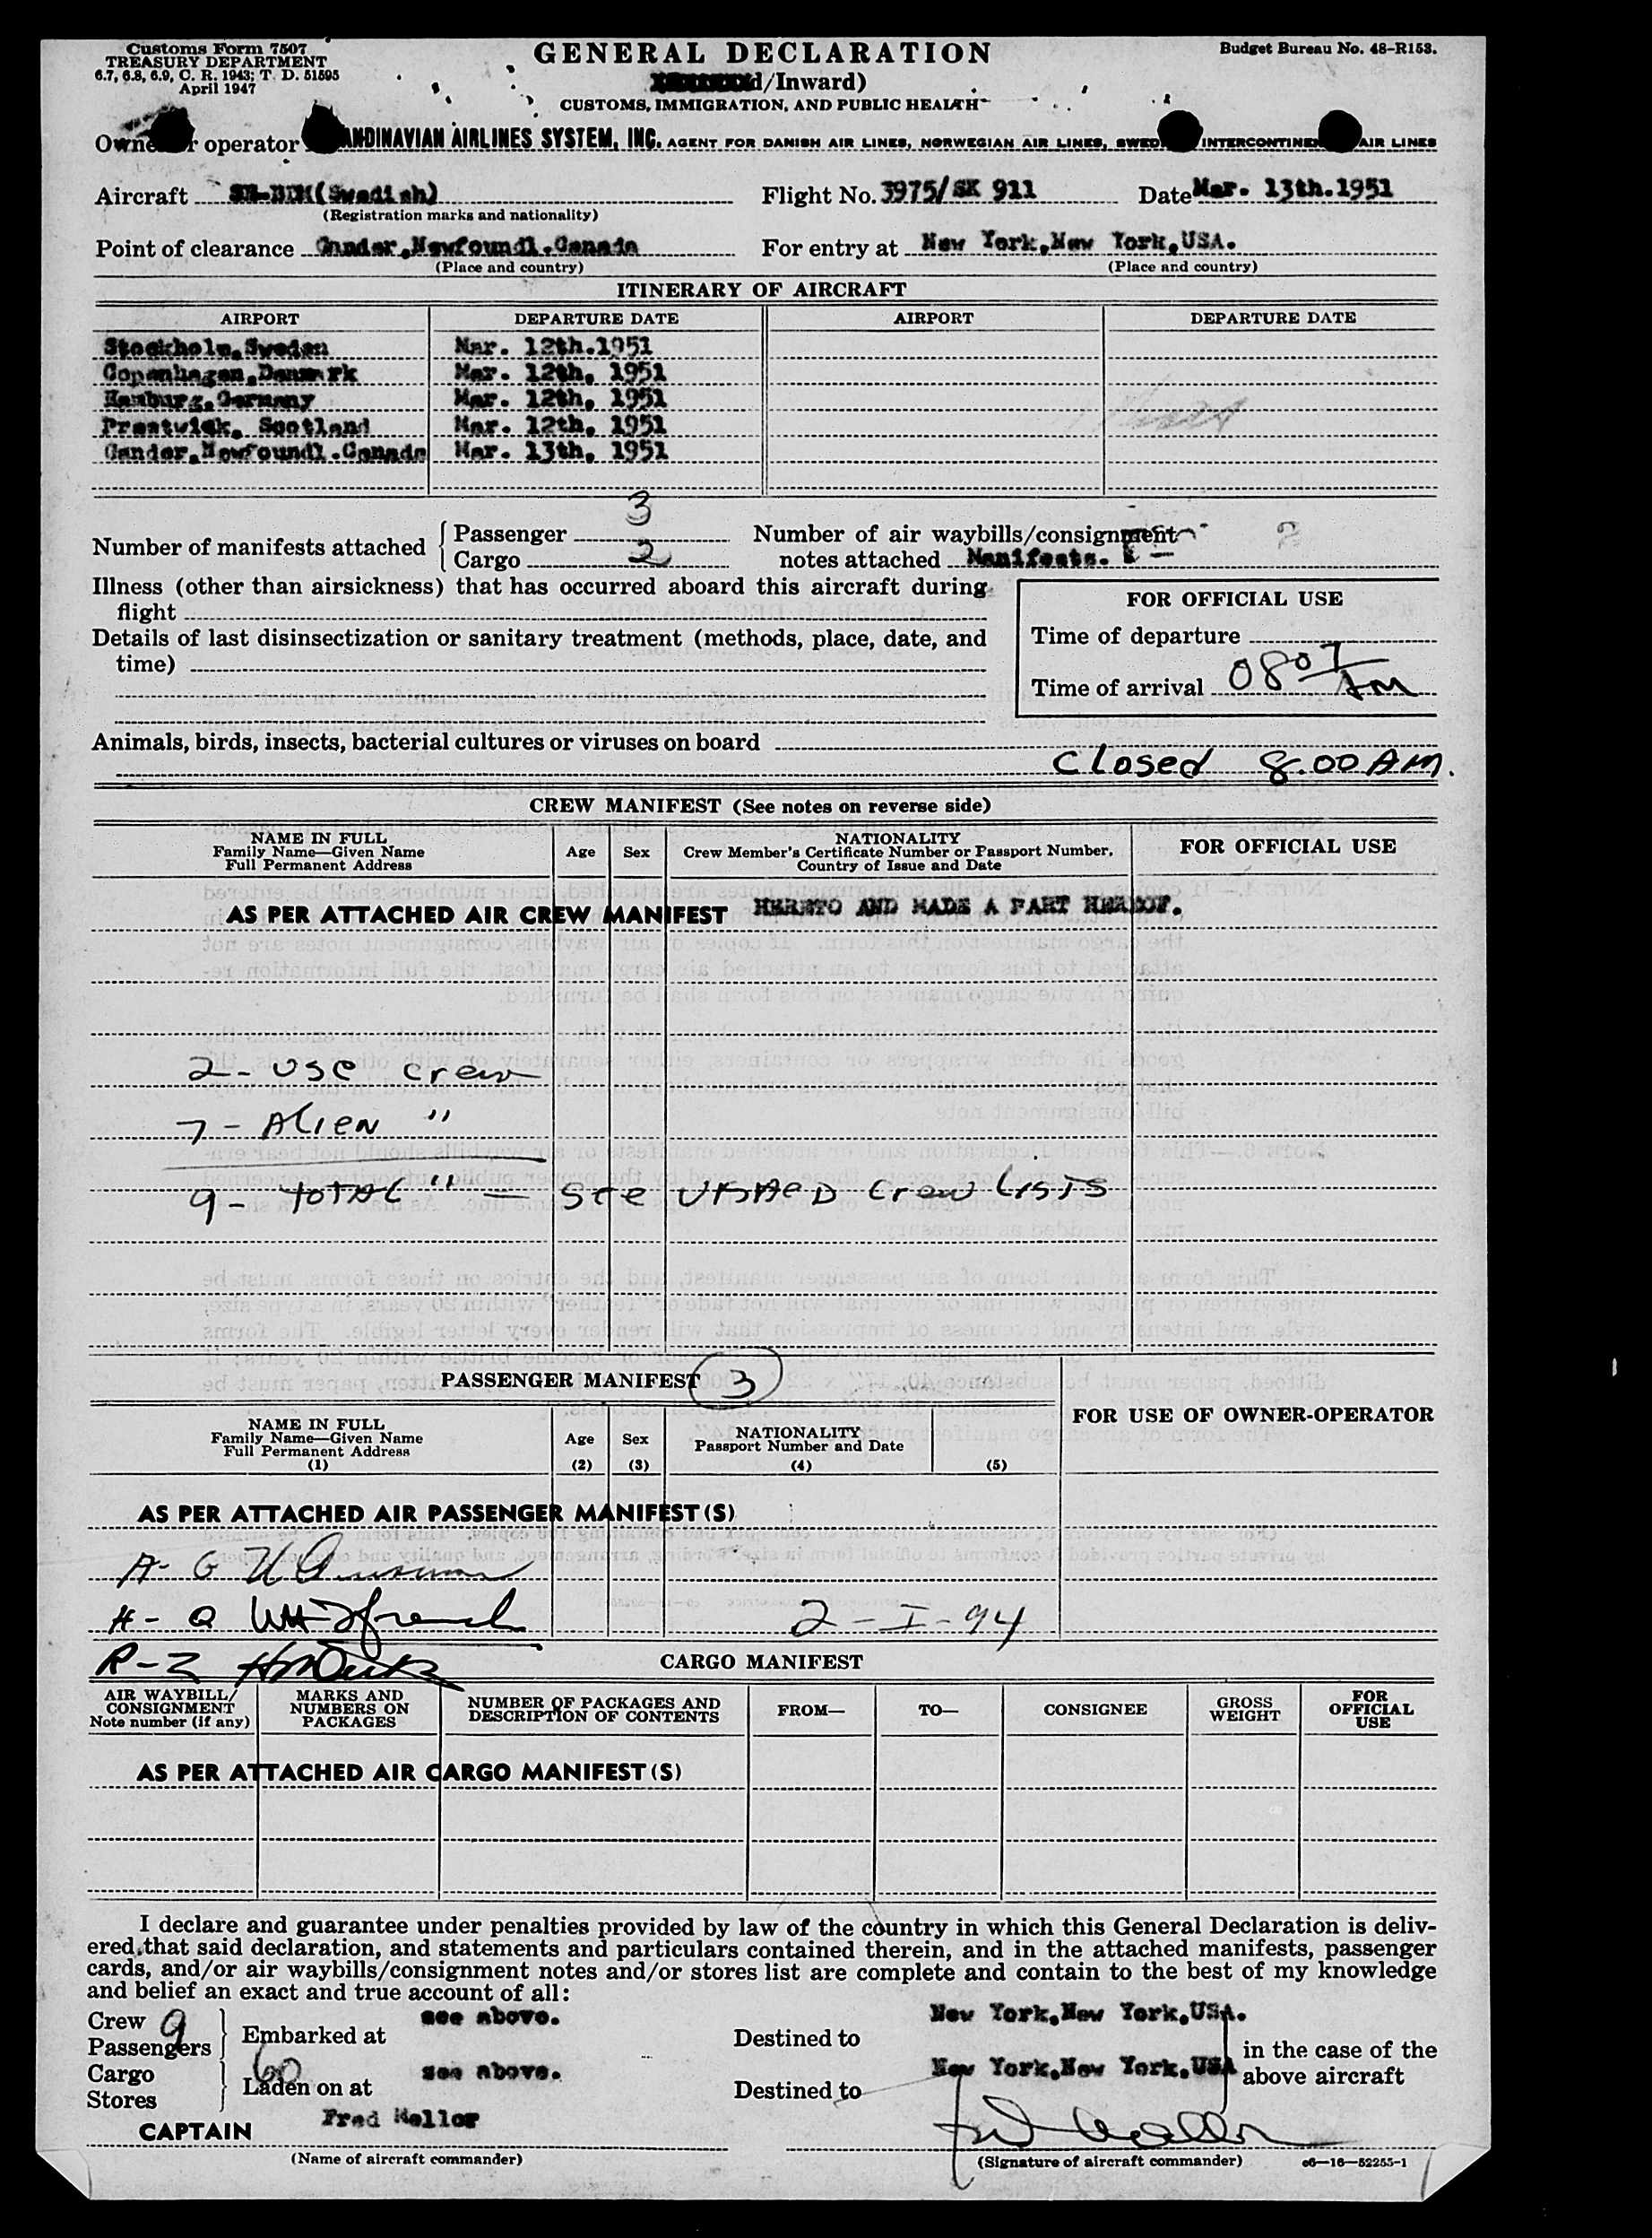 Customs Form 7507
TREASURY DEPARTMENT
6.7, 6.8, 6.9, C. R. 1943; T. D. 51595
April 1947
GENERAL DECLARATION
/Inward)
CUSTOMS, IMMIGRATION, AND PUBLIC HEALTH
Budget Bureau No. 48-R153.
operator ANDINAVIAN AIRLINES SYSTEM, INC. AGENT FOR DANISH AIR LINES, NORWEGIAN AIR LINES, SWED INTERCONTINEN AIR LINES
Aircraft (Swedish) Flight No. 3975/SK 911 Date Mar. 13th.1951
(Registration marks and nationality)
Point of clearance Gander,Newfoundl.Canada For entry at New York,New York,USA.
(Place and country) (Place and country)
ITINERARY OF AIRCRAFT
AIRPORT DEPARTURE DATE AIRPORT DEPARTURE DATE
Stockholm,Sweden Mar. 12th.1951
Copenhagen,Denmark Mar. 12th, 1951
Hamburg,Germany Mar. 12th, 1951
Prestwick, Scotland Mar. 12th, 1951
Gander,Newfoundl.Canada Mar. 13th, 1951
Number of manifests attached
Passenger 3
Cargo 2
Number of air waybills/consignment 2
notes attached Manifests.
Illness (other than airsickness) that has occurred aboard this aircraft during
flight
Details of last disinsectization or sanitary treatment (methods, place, date, and
time)
FOR OFFICIAL USE
Time of departure
Time of arrival 0807 AM
Animals, birds, insects, bacterial cultures or viruses on board
Closed 8.00 AM.
CREW MANIFEST (See notes on reverse side)
NAME IN FULL
Family Name—Given Name
Full Permanent Address
Age
Sex
NATIONALITY
Crew Member's Certificate Number or Passport Number,
Country of Issue and Date
FOR OFFICIAL USE
AS PER ATTACHED AIR CREW MANIFEST HERETO AND MADE A PART HEREOF.
2 - USC crew
7 - Alien "
9 - TOTAL " — See Visaed Crew Lists
PASSENGER MANIFEST 3
NAME IN FULL
Family Name—Given Name
Full Permanent Address
(1)
Age
(2)
Sex
(3)
NATIONALITY
Passport Number and Date
(4)
(5)
FOR USE OF OWNER-OPERATOR
AS PER ATTACHED AIR PASSENGER MANIFEST(S)
A- G
H- Q
2 - I - 94
R-Z
CARGO MANIFEST
AIR WAYBILL/
CONSIGNMENT
Note number (if any)
MARKS AND
NUMBERS ON
PACKAGES
NUMBER OF PACKAGES AND
DESCRIPTION OF CONTENTS
FROM—
TO—
CONSIGNEE
GROSS
WEIGHT
FOR
OFFICIAL
USE
AS PER ATTACHED AIR CARGO MANIFEST(S)
I declare and guarantee under penalties provided by law of the country in which this General Declaration is deliv-
ered,that said declaration, and statements and particulars contained therein, and in the attached manifests, passenger
cards, and/or air waybills/consignment notes and/or stores list are complete and contain to the best of my knowledge
and belief an exact and true account of all:
Crew 9
Passengers 60
Embarked at see above. Destined to New York,New York,USA.
Cargo
Stores
Laden on at see above. Destined to New York,New York,USA
in the case of the
above aircraft
CAPTAIN Fred Kellor
(Name of aircraft commander)
(Signature of aircraft commander)
c6—16—52255-1